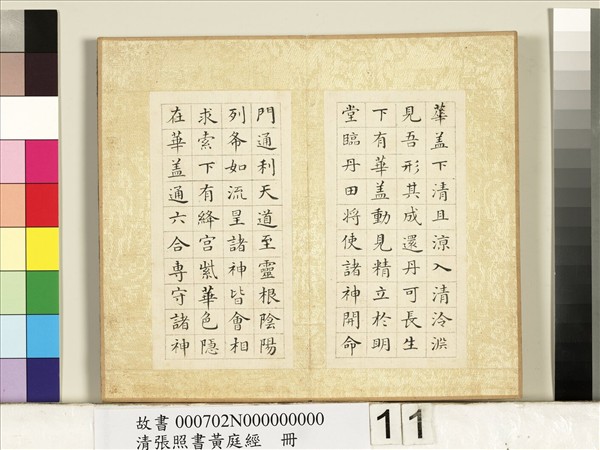 華盖下清且涼入清泠淵
見吾形其成還丹可長生
下有華盖動見精立於明
堂臨丹田将使諸神開命
門通利天道至靈根陰陽
列布如流星諸神皆會相
求索下有絳宫紫華色隱
在華盖通六合專守諸神
故書 000702N000000000
清張照書黃庭經 冊
11